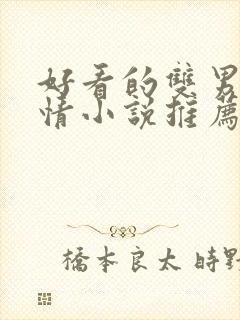 好看的雙男
情小說推薦
橋本良太 時野